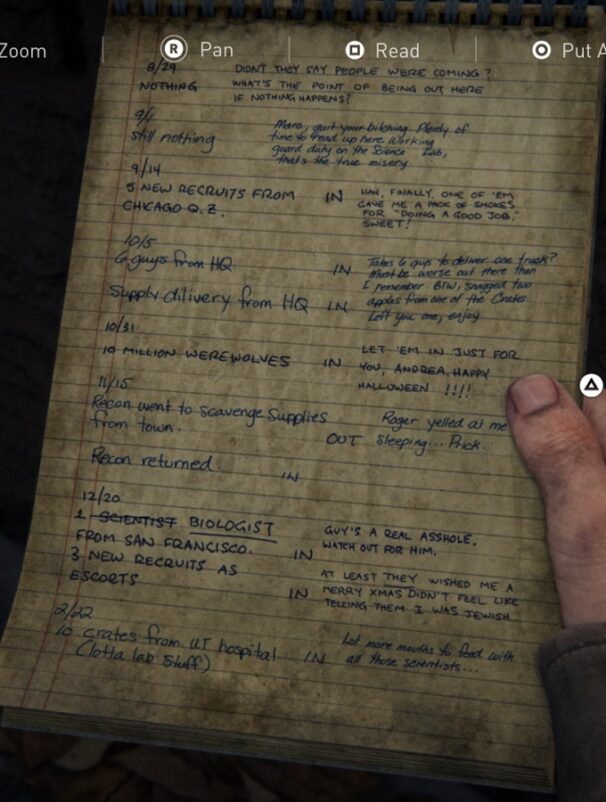 Zoom
R Pan
Read
Put A
8/29
NOTHING
DIDN'T THEY SAY PEOPLE WERE COMING?
WHAT'S THE POINT OF BEING OUT HERE
IF NOTHING HAPPENS?
9/1
still nothing
Marc, quit your bitching. Plenty of
time to read up here. Working
guard duty on the Science Lab,
that's the true misery.
9/14
5 NEW RECRUITS FROM
CHICAGO Q.Z.
IN
HAH, FINALLY. ONE OF 'EM
GAVE ME A PACK OF SMOKES
FOR "DOING A GOOD JOB."
SWEET!
10/5
6 guys from HQ
IN
Supply dilivery from HQ
IN
Takes 6 guys to deliver one truck?
Must be worse out there than
I remember. BTW, snagged two
apples from one of the Crates
Left you one, enjoy
10/31
10 MILLION WEREWOLVES
IN
LET 'EM IN JUST FOR
YOU, ANDREA, HAPPY
HALLOWEEN !!!!
11/15
Recon went to Scavenge Supplies
from town.
OUT
Roger yelled at me
sleeping... Prick.
Recon returned.
IN
12/20
1 SCIENTIST BIOLOGIST
FROM SAN FRANCISCO.
IN
GUY'S A REAL ASSHOLE.
WATCH OUT FOR HIM.
3 NEW RECRUITS AS
ESCORTS
IN
AT LEAST THEY WISHED ME A
MERRY XMAS DIDN'T FEEL LIKE
TELLING THEM I WAS JEWISH
2/22
10 crates from UT hospital
(lotta lab stuff)
IN
Lot more mouths to feed with
all those scientists...